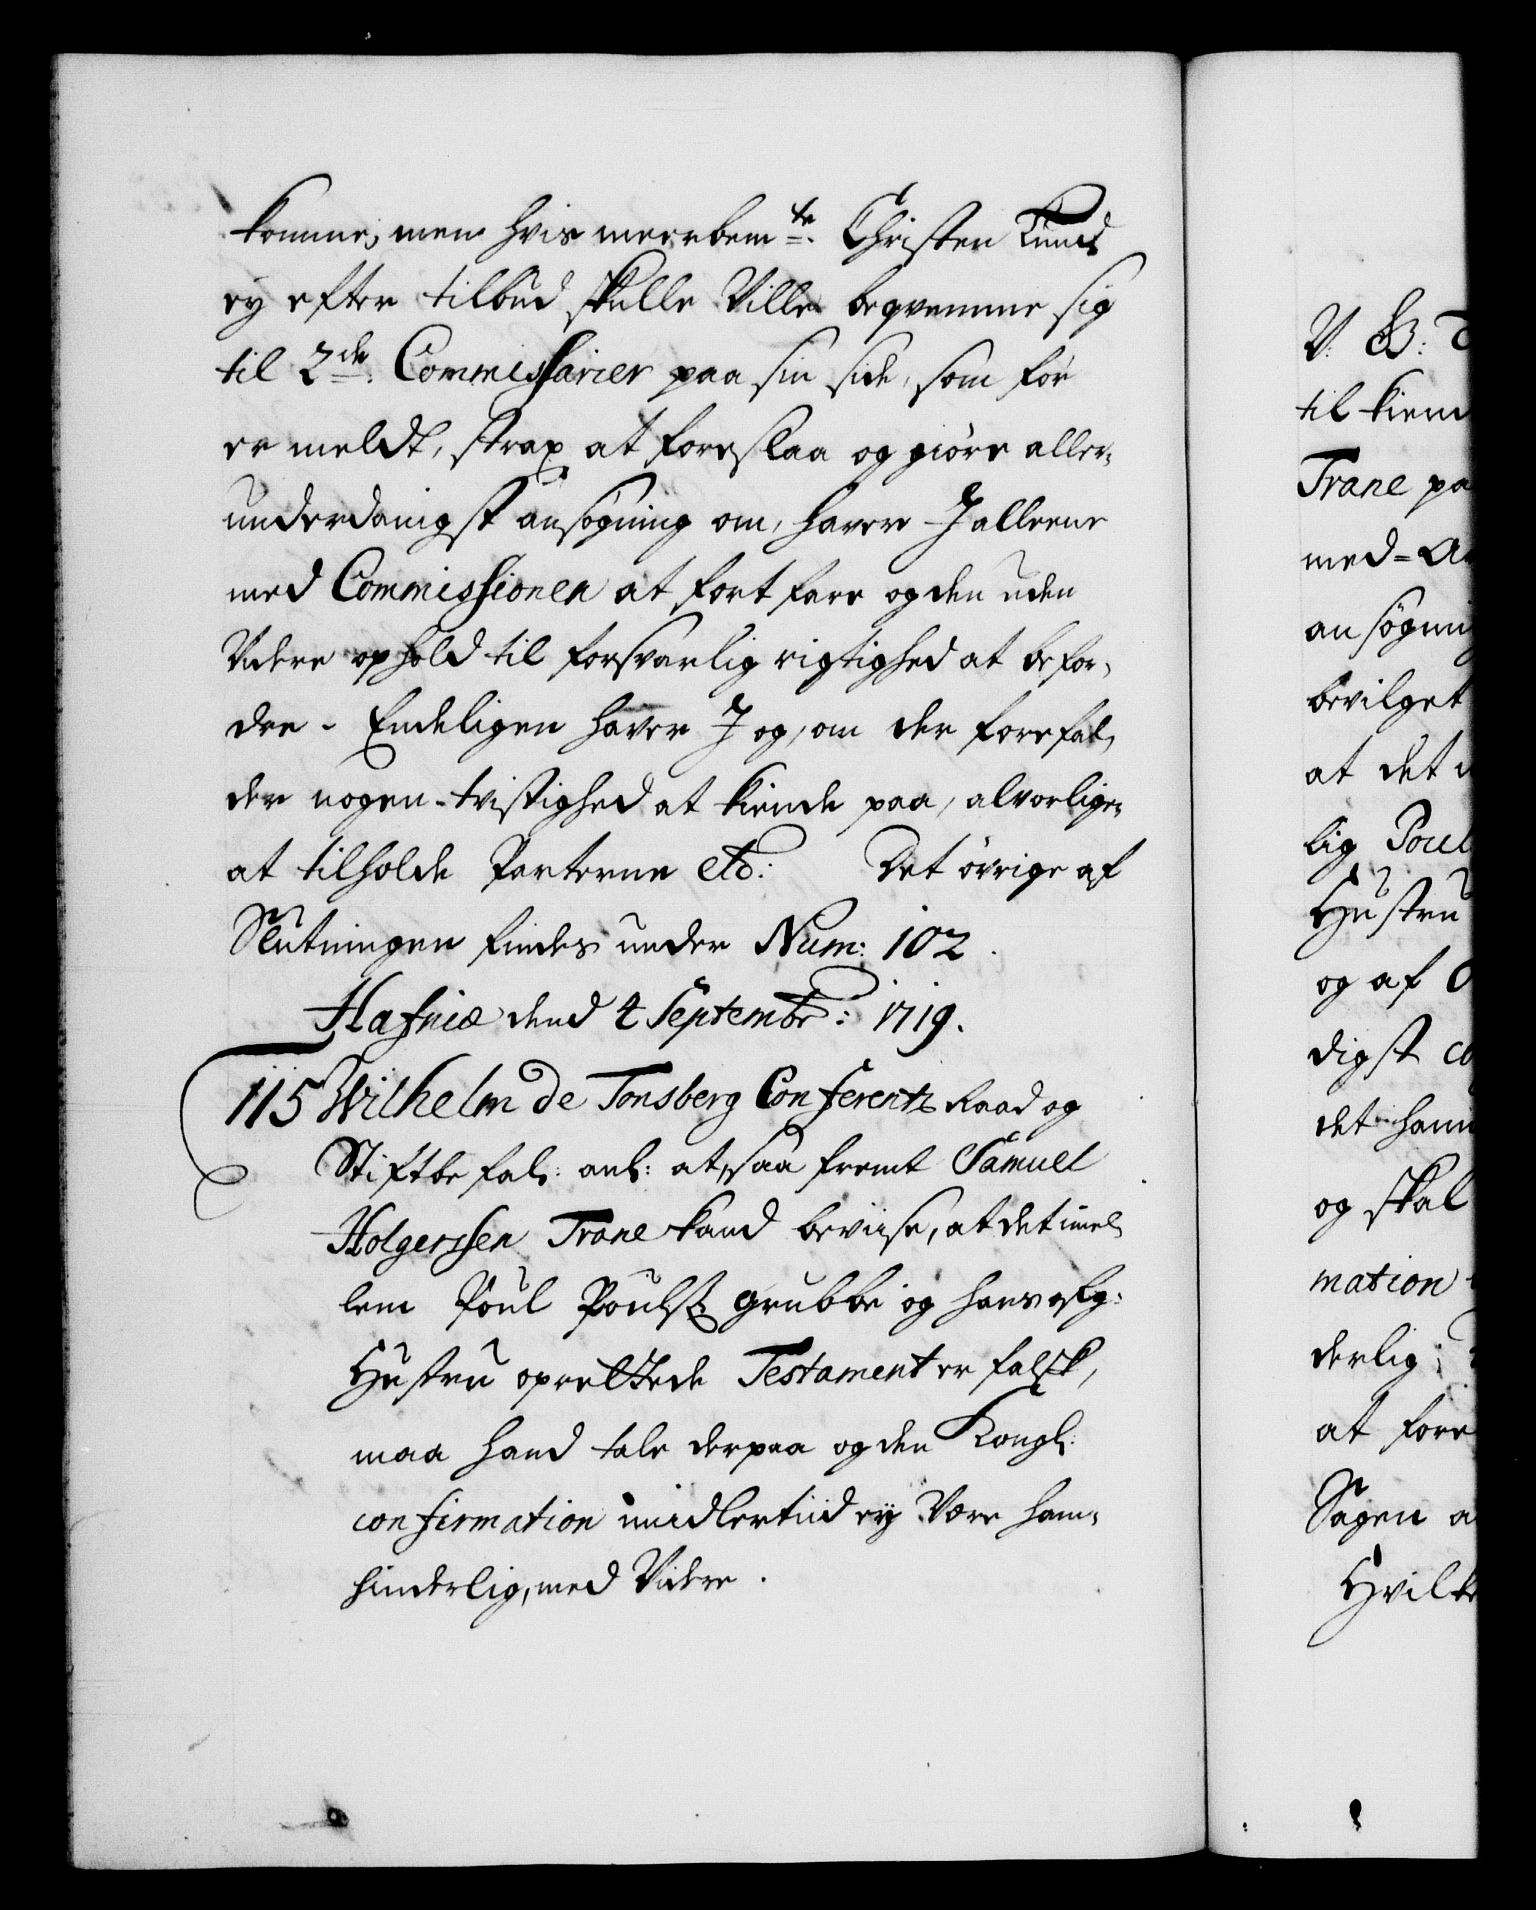 komme, men hvis meerbem.te Christen Knud
ey efter tilbud skulle Ville beqvemme sig
til 2de: Commissarier paa sin side, som før
er meldt, strax at foreslaa og giøre aller-
underdanigst ansøgning om, haver I alleene
med Commissionen at fortfare og den uden
Videre ophold til forsvarlig rigtighed at befor-
dre. Endeligen haver I og, om der forefal-
der nogen tvistighed at kiende paa, alvorlige-
at tilholde Parterne etc: Det øvrige af
Slutningen findes under Num: 102.
Hafniæ dend 4 Septembr: 1719.
115 Wilhelm de Tonsberg Conferentz Raad og
Stiftbefal: anl: at, saa fremt Samuel
Holgerssen Trane kand beviise, at det imel-
lem Poul Pouls: Grubbe og hans afg:
Hustru oprettede Testament er falsk,
maa hand tale derpaa og den Kongl:
confirmation imidlertiid ey Være ham-
hinderlig, med Videre.
V: G: T
til kiend
Trane pa
med=A
ansøgni
bevilget
at det
lig Poul
Hustru
og af
digst co
det ham
og skal
mation
derlig;
at fore
Sagen a
Hvilke